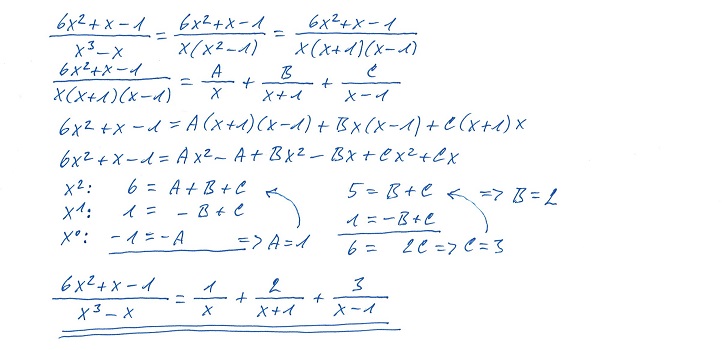 (6x²+x−1)/(x³−x) = (6x²+x−1)/(x(x²−1)) = (6x²+x−1)/(x(x+1)(x−1))
(6x²+x−1)/(x(x+1)(x−1)) = A/x + B/(x+1) + C/(x−1)
6x²+x−1 = A(x+1)(x−1) + Bx(x−1) + C(x+1)x
6x²+x−1 = Ax² − A + Bx² − Bx + Cx² + Cx
x²: 6 = A+B+C
x¹: 1 = −B+C
x⁰: −1 = −A => A=1
5 = B+C => B=2
1 = −B+C
6 = 2C => C=3
(6x²+x−1)/(x³−x) = 1/x + 2/(x+1) + 3/(x−1)